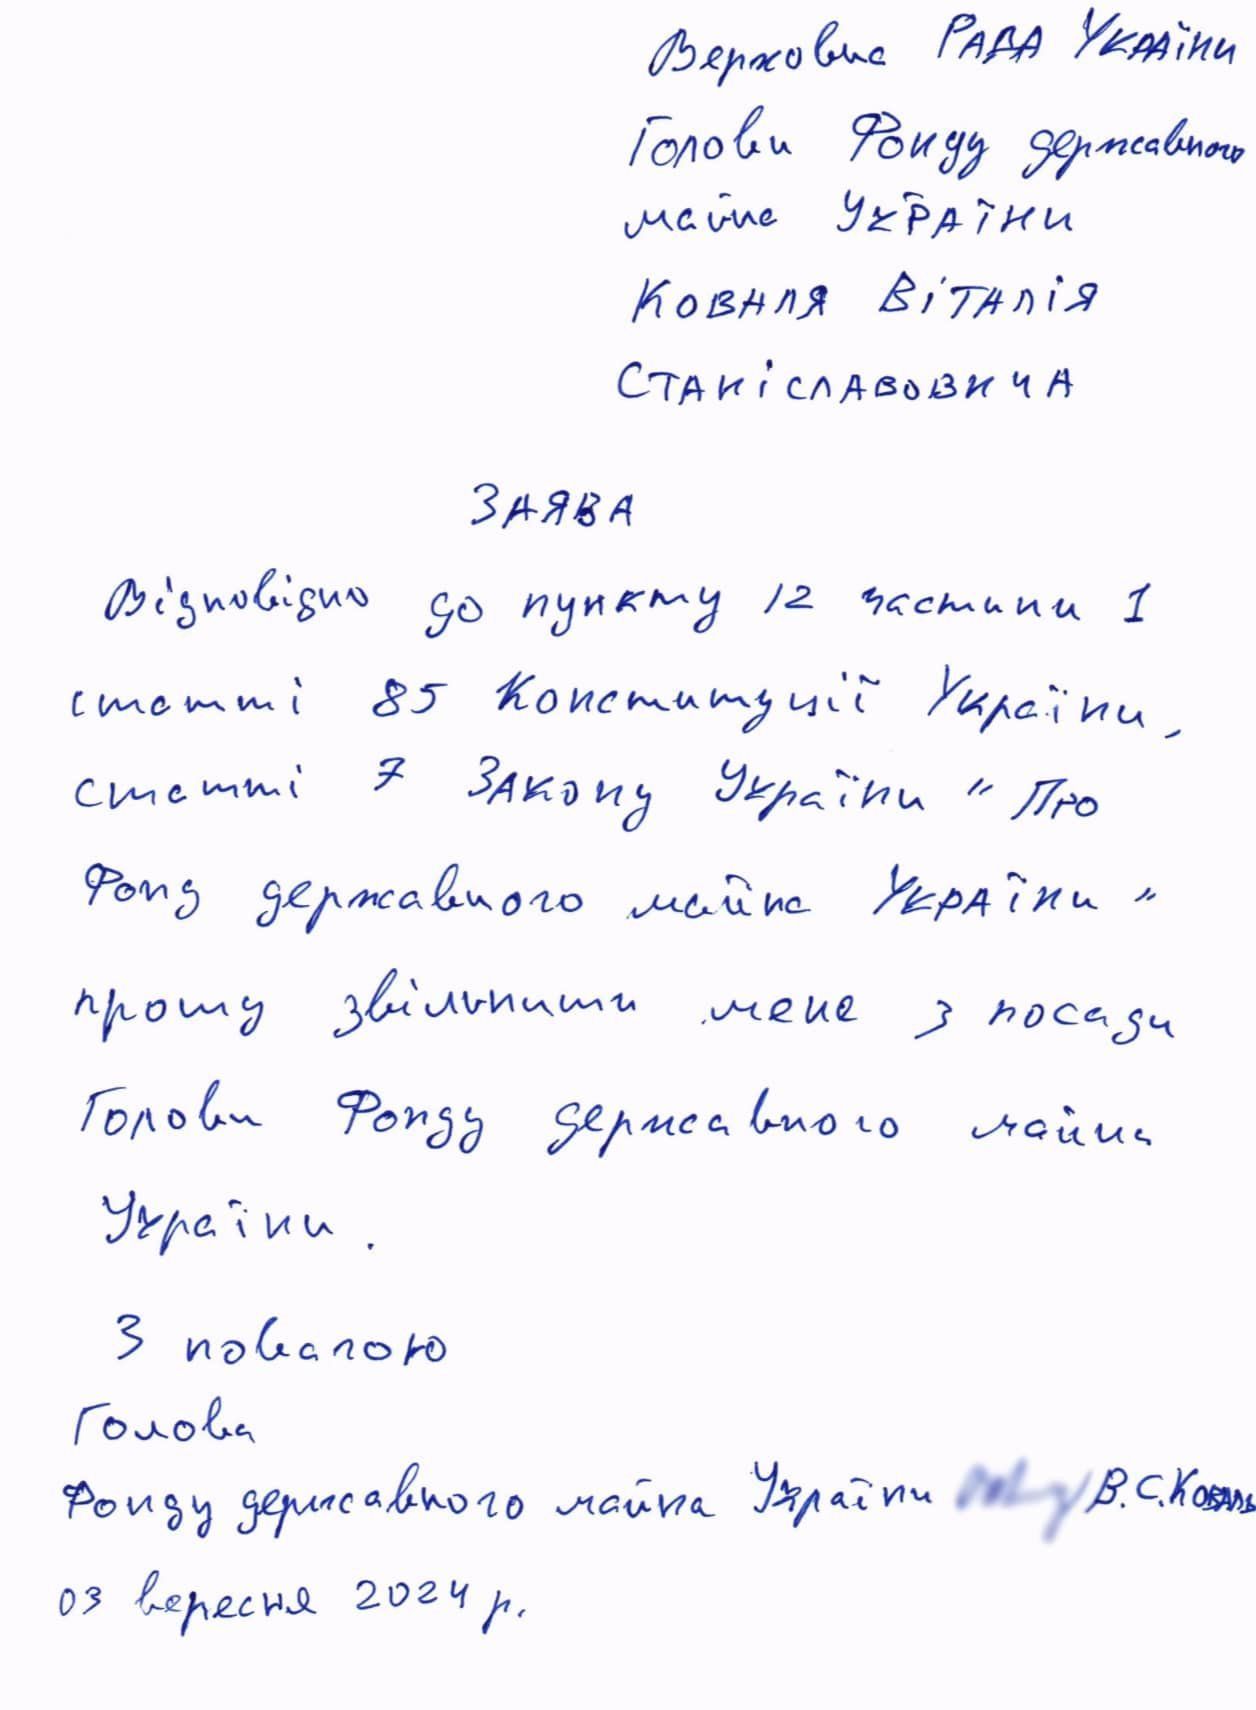 Верховна РАДА УКРАЇНИ
Голови Фонду державного
майна УКРАЇНИ
КОВАЛЯ ВІТАЛІЯ
СТАНІСЛАВОВИЧА
ЗАЯВА
Відповідно до пункту 12 частини 1
статті 85 Конституції України,
статті 7 Закону України "Про
Фонд державного майна України"
прошу звільнити мене з посади
Голови Фонду державного майна
України.
З повагою
Голова
Фонду державного майна України В.С.КОВАЛЬ
03 вересня 2024 р.